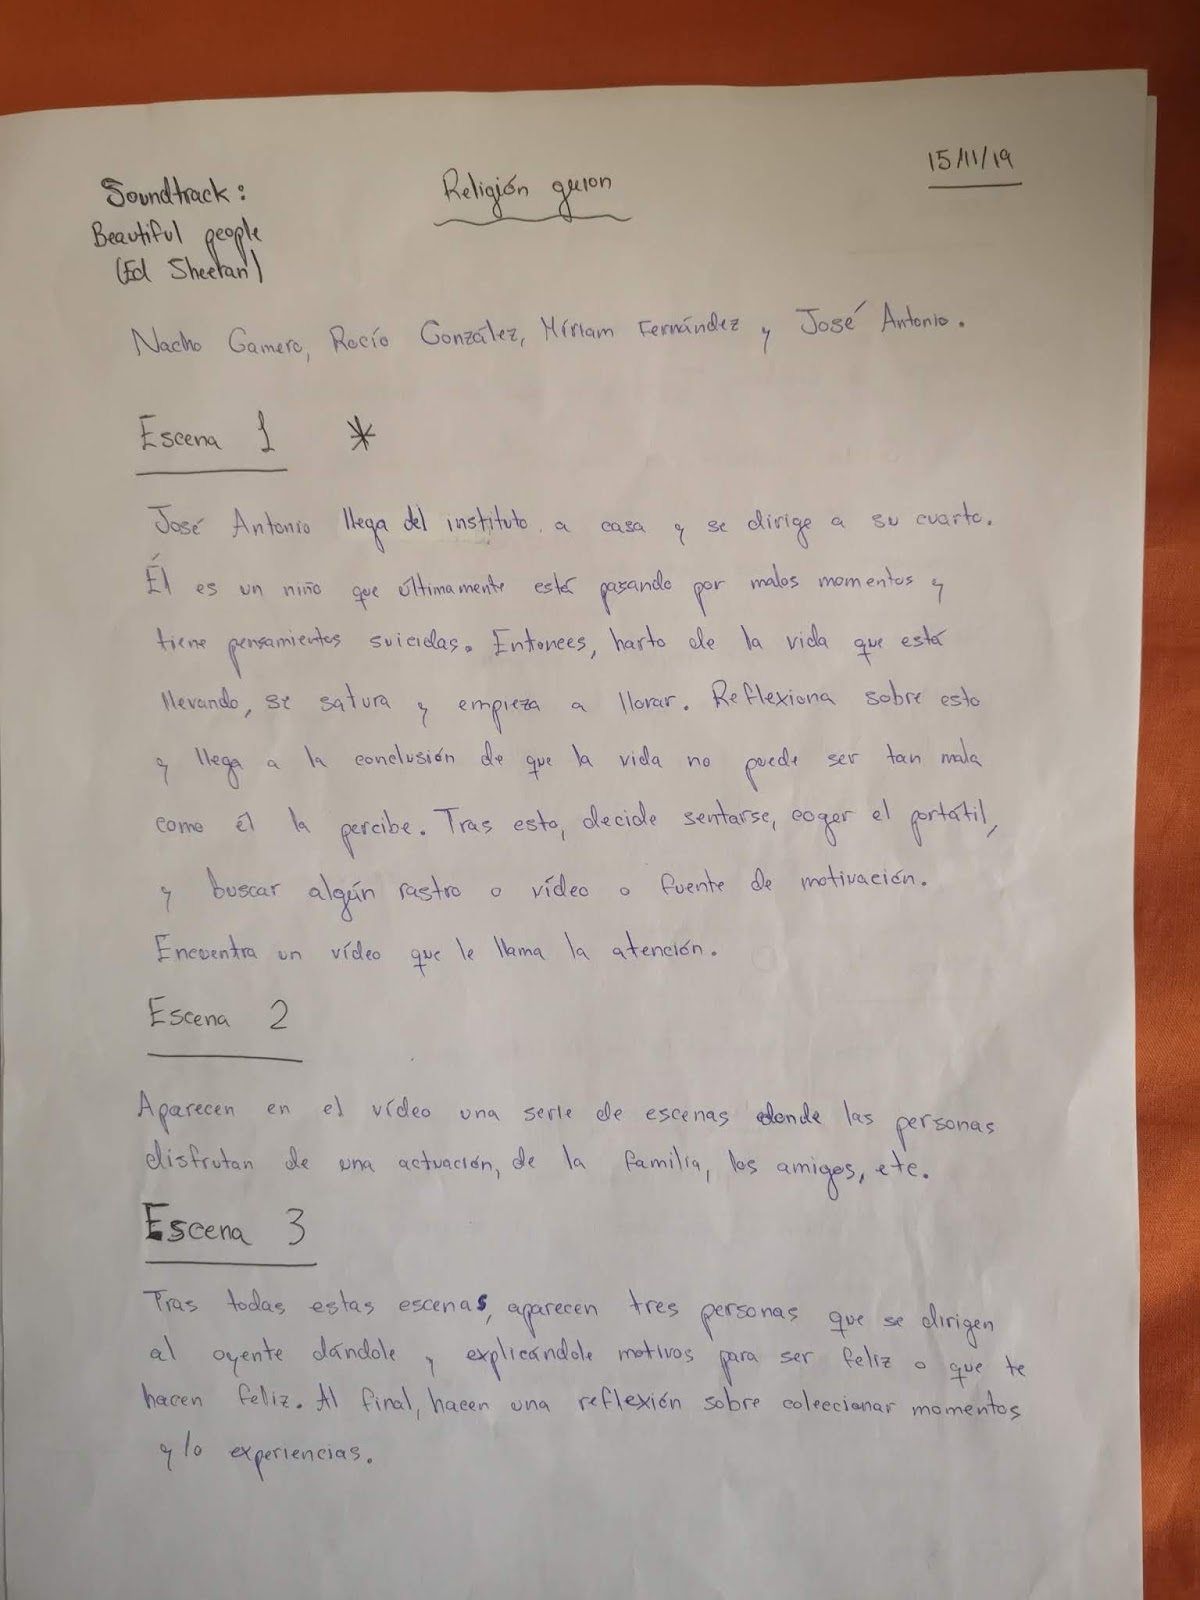 15/11/19
Religión guion
Soundtrack:
Beautiful people
(Ed Sheeran)
Nacho Gamero, Rocío González, Míriam Fernández y José Antonio.
Escena 1 *
José Antonio llega del instituto a casa y se dirige a su cuarto.
Él es un niño que últimamente está pasando por malos momentos y
tiene pensamientos suicidas. Entonces, harto de la vida que está
llevando, se satura y empieza a llorar. Reflexiona sobre esto
y llega a la conclusión de que la vida no puede ser tan mala
como él la percibe. Tras esto, decide sentarse, coger el portátil,
y buscar algún rastro o vídeo o fuente de motivación.
Encuentra un vídeo que le llama la atención.
Escena 2
Aparecen en el vídeo una serie de escenas donde las personas
disfrutan de una actuación, de la familia, los amigos, etc.
Escena 3
Tras todas estas escenas, aparecen tres personas que se dirigen
al oyente dándole y explicándole motivos para ser feliz o que te
hacen feliz. Al final, hacen una reflexión sobre coleccionar momentos
y/o experiencias.